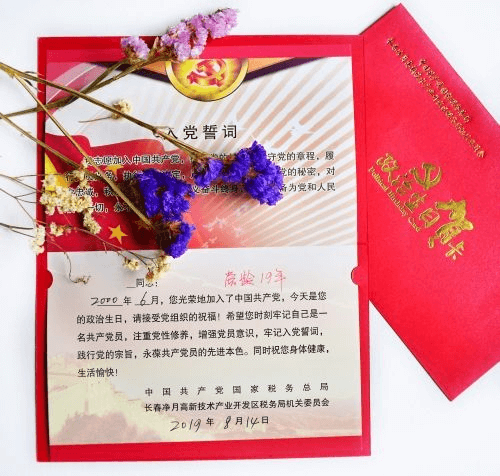 入党誓词
志愿加入中国共产党
守党的章程，履
党的秘密，对
奋斗终身
为党和人民
一切，永
同志： 党龄19年
2000 年 6 月，您光荣地加入了中国共产党，今天是您
的政治生日，请接受党组织的祝福！希望您时刻牢记自己是一
名共产党员，注重党性修养，增强党员意识，牢记入党誓词，
践行党的宗旨，永葆共产党员的先进本色。同时祝您身体健康，
生活愉快！
中国共产党国家税务总局
长春净月高新技术产业开发区税务局机关委员会
2019 年 8 月 14 日
政治生日贺卡
Political Birthday Card